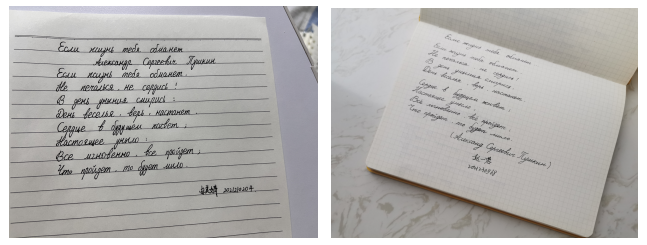 Если жизнь тебя обманет
Александр Сергеевич Пушкин
Если жизнь тебя обманет.
Не печалься, не сердись!
В день уныния смирись:
День веселья, верь, настанет.
Сердце в будущем живет;
Настоящее уныло:
Все мгновенно, все пройдет;
Что пройдет, то будет мило.
Если жизнь тебя обманет
Если жизнь тебя обманет
Не печалься, не сердись!
В день уныния смирись:
День веселья, верь, настанет
Сердце в будущем живет;
Настоящее уныло:
Все мгновенно, все пройдет;
Что пройдет, то будет мило.
(Александр Сергеевич Пушкин)